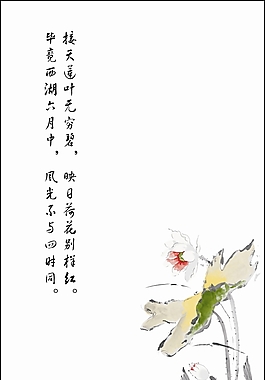 毕竟西湖六月中，风光不与四时同。
接天莲叶无穷碧，映日荷花别样红。